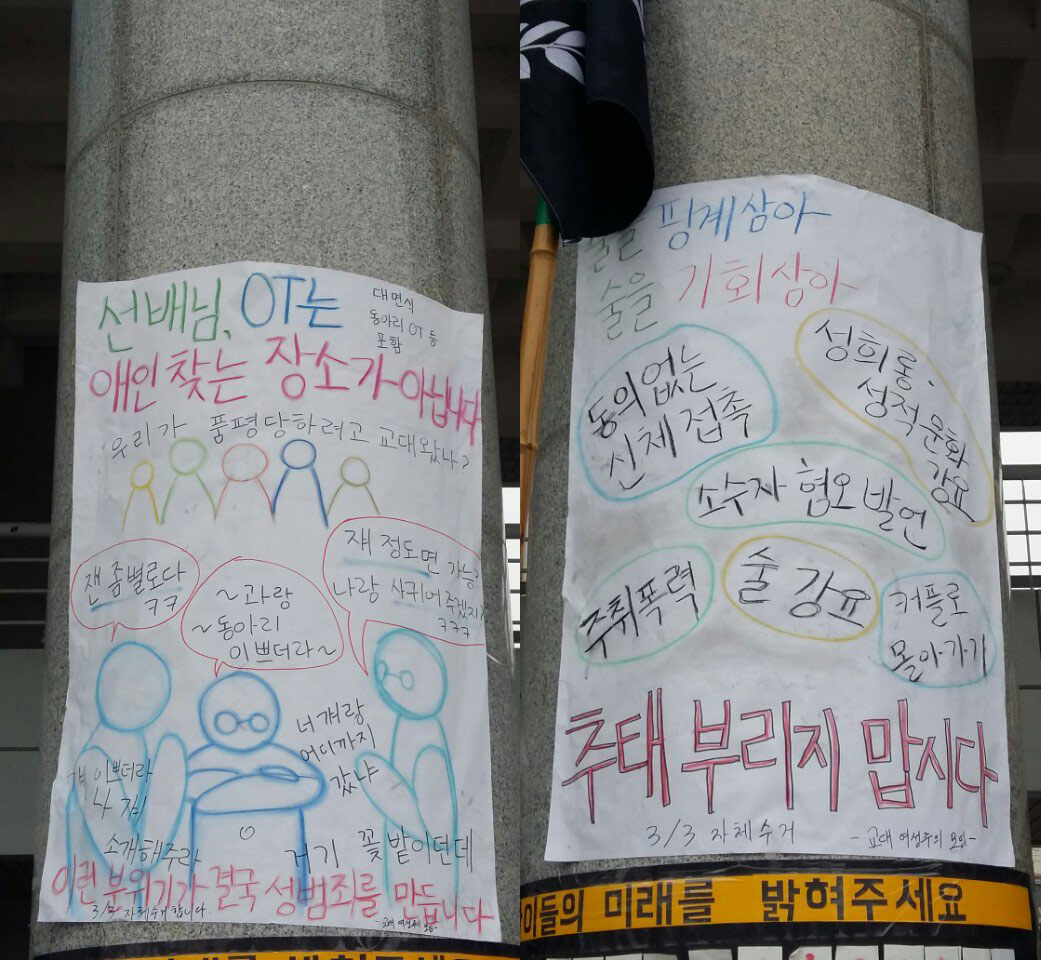 선배님, OT는
대면식
동아리 OT 등
포함
애인 찾는 장소가 아닙니다
우리가 품평당하려고 교대왔나?
쟨 좀 별로다
ㅋㅋ
~과랑
~동아리
이쁘더라~
쟤 정도면 가능?
나랑 사귀어 주겠지?
ㅋㅋㅋ
너 걔랑
어디까지
갔냐
걔 이쁘더라
나 좀
소개해주라
거기 꽃밭이던데
이런 분위기가 결국 성범죄를 만듭니다
3/3 자체수거합니다
-교대 여성주의 모임-
술을 핑계삼아
술을 기회삼아
동의없는
신체 접촉
성희롱·
성적 문화
강요
소수자 혐오 발언
주취폭력
술 강요
커플로
몰아가기
추태 부리지 맙시다
3/3 자체수거
-교대 여성주의 모임-
이들의 미래를 밝혀주세요